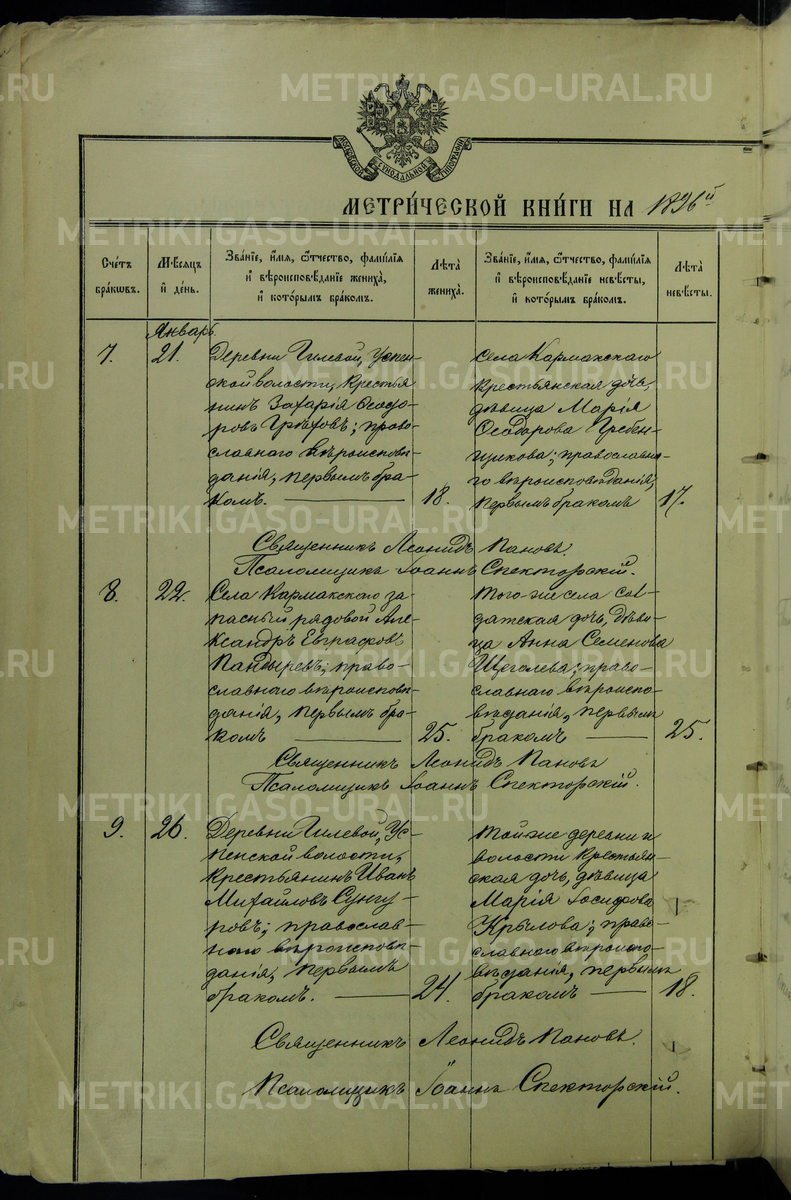 METRIKI.GASO-URAL.RU
РОССИЙСКОЙ СѴНОДАЛЬНОЙ ТИПОГРАФІИ
МЕТРИ́ЧЕСКОЙ КНИ́ГИ НА 1896й
Сче́тъ бра́кѡвъ.
Мѣ́сяцъ и҆ де́нь.
Зва́нїе, и҆́мя, ѻ҆́тчество, фами́лїя и҆ вѣроисповѣ́данїе жениха̀, и҆ кото́рымъ бра́комъ.
Лѣ́та жениха̀.
Зва́нїе, и҆́мя, ѻ҆́тчество, фами́лїя и҆ вѣроисповѣ́данїе невѣ́сты, и҆ кото́рымъ бра́комъ.
Лѣ́та невѣ́сты.
Январь
7. 21.
Деревни Гилевой, Успен-
ской волости, крестья
нинъ Захарія Ѳеодо-
ровъ Грѣховъ; право-
славнаго вѣроисповѣ-
данія, первымъ бра-
комъ. 18.
Села Кармакскаго
крестьянская дочь,
дѣвица Марія
Ѳеодорова Гребен-
щикова; православна-
го вѣроисповѣданія,
первымъ бракомъ 17.
Священникъ Леонидъ Пановъ.
Псаломщикъ Іоаннъ Спекторскій.
8. 22.
Села Кармакскаго за
пасный рядовой Але-
ксандръ Евграфовъ
Пандыревъ; право-
славнаго вѣроисповѣ-
данія, первымъ бра-
комъ 25.
Того-же села сол
датская дочь, дѣви-
ца Анна Семенова
Щеголева; право-
славнаго вѣроиспо-
вѣданія, первымъ
бракомъ 25.
Священникъ Леонидъ Пановъ
Псаломщикъ Іоаннъ Спекторскій.
9. 26.
Деревни Гилевой, Ус-
пенской волости,
крестьянинъ Иванъ
Михайловъ Сунгу-
ровъ; православ-
наго вѣроисповѣ-
данія, первымъ
бракомъ. 24.
Той-же деревни и
волости крестьян-
ская дочь, дѣвица
Марія Іосифова
Крылова; право-
славнаго вѣроиспо-
вѣданія, первымъ
бракомъ 18.
Священникъ Леонидъ Пановъ.
Псаломщикъ Іоаннъ Спекторскій.